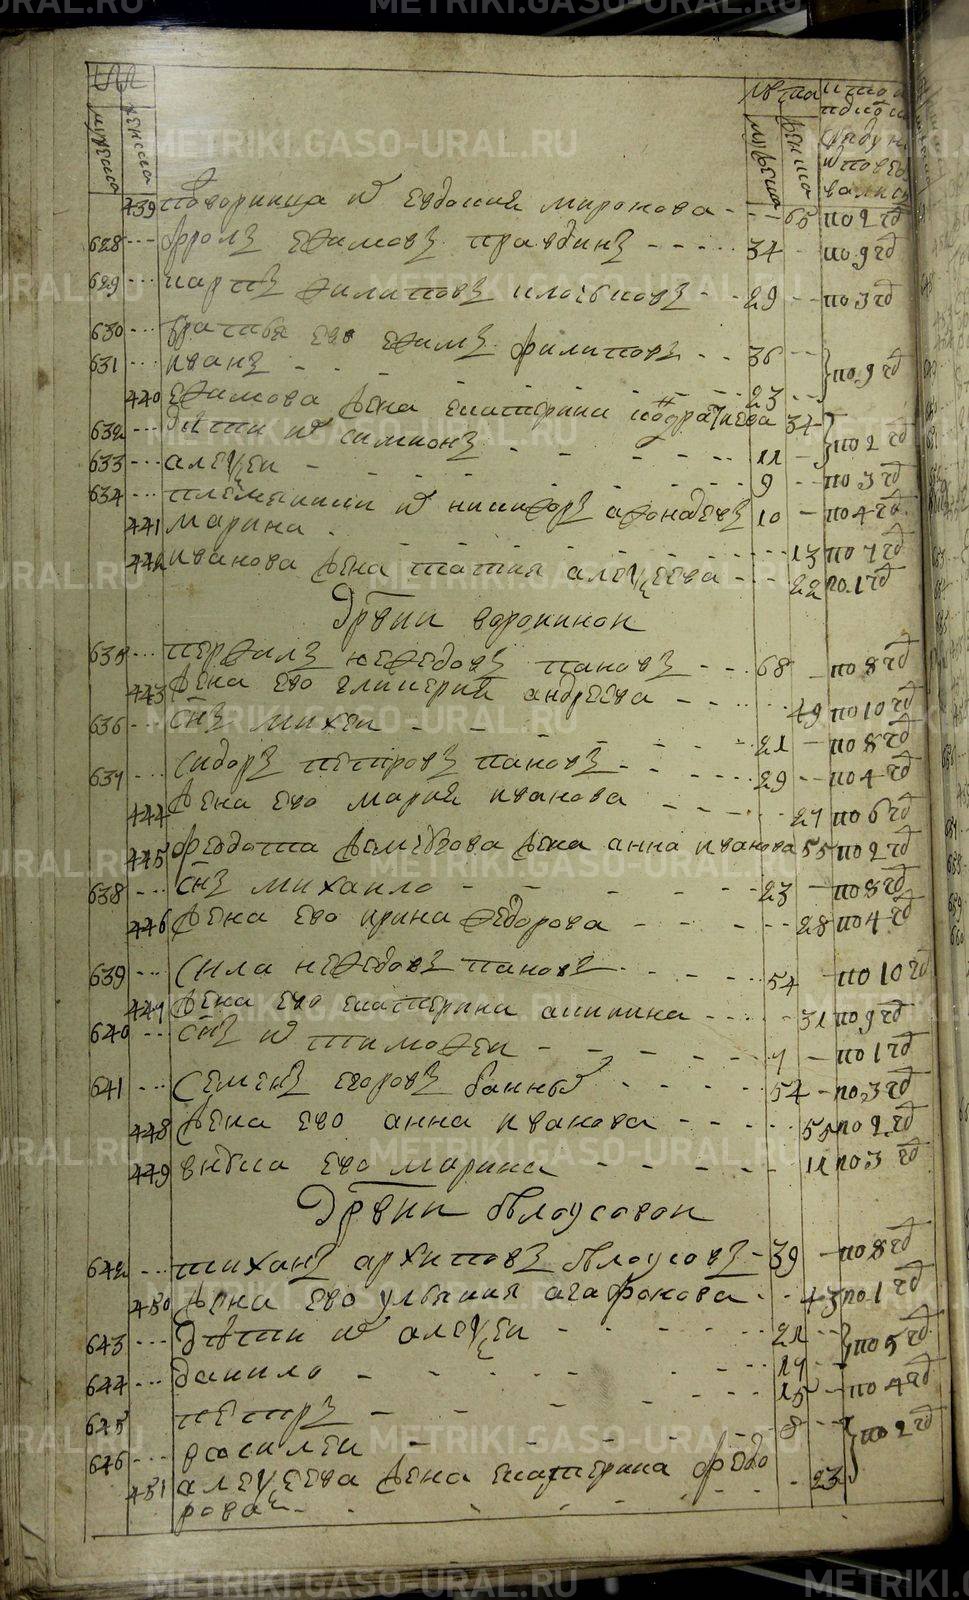 METRIKI.GASO-URAL.RU
лѣта
мужеска женска мужеска женска
439 ѿ Евдокия миронова - - - 65 по 2 гд
628 --- фролъ ефимовъ правдинъ - - - - - 34 - по 9 гд
629 --- карпъ филиповъ - - 29 -- по 3 гд
630 --- братья ево ефимъ филиповъ - - 36 --
631 --- иванъ - - - 23 -- по 9 гд
440 ефимова жена екатерина кондратиева 34
632 --- дѣти ѿ симионъ - - - - - 11 - по 2 гд
633 --- алеѯеи - - - - - 9 -- по 3 гд
634 --- племянники ѿ никифоръ афонасьевъ 10 - по 4 гд
441 марина - - - 13 по 7 гд
442 иванова жена татия алеѯеева - - - 22 по 1 гд
Дрвни воронинои
635 --- перфилъ нефедовъ пановъ - - - 68 - по 8 гд
443 жена ево гликерия андреева - - - 49 по 10 гд
636 -- снъ михеи - - - 21 - по 8 гд
637 --- сидоръ петровъ пановъ - - - 29 -- по 4 гд
444 жена ево мария иванова - - - 27 по 6 гд
445 жена анна иванова 55 по 2 гд
638 --- снъ михаило - - - 23 - по 8 гд
446 жена ево ирина федорова - - - 28 по 4 гд
639 --- сила нефедовъ пановъ - - - 54 - по 10 гд
447 жена ево екатерина аникина - - - 31 по 9 гд
640 --- снъ ѿ тимофеи - - - 7 - по 1 гд
641 --- семенъ егоровъ банныѿ - - - 54 - по 3 гд
448 жена ево анна иванова - - - 55 по 2 гд
449 внука ево марина - - - 11 по 3 гд
Дрвни бѣлоусовои
642 --- тиханъ архиповъ бѣлоусовъ - 39 - по 8 гд
450 жена ево ульяния агафонова - - 43 по 1 гд
643 --- дѣти ѿ алеѯеи - - - 21 -- по 5 гд
644 --- данило - - - 17 --
645 --- петръ - - - 15 -- по 4 гд
646 --- василеи - - - 8 -- по 2 гд
451 алеѯеева жена екатерина федо - 23
рова - - -